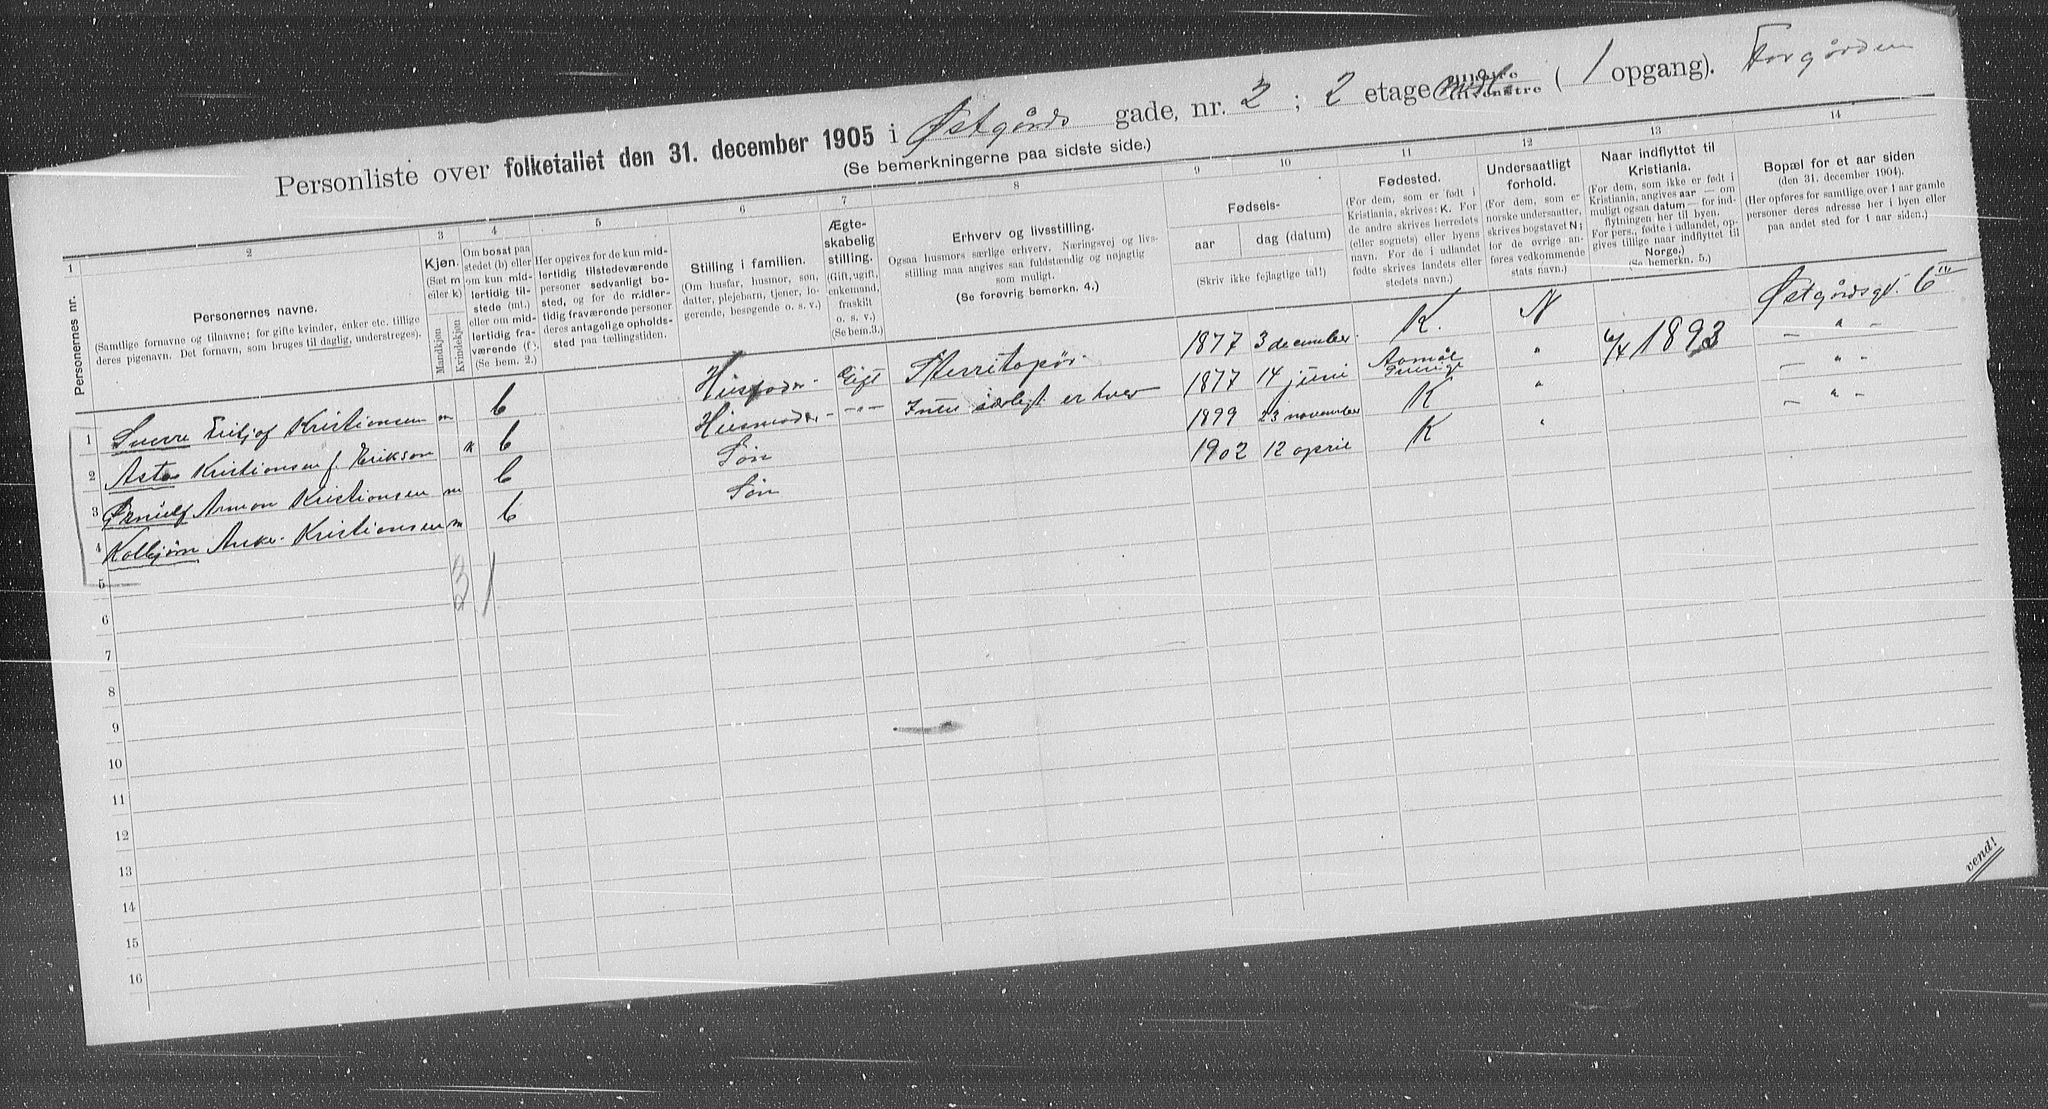 Personliste over folketallet den 31. december 1905 i Østgårds gade, nr. 2; 2 etage (1 opgang). Forgården
(Se bemerkningerne paa sidste side.)
1 2 3 4 5 6 7 8 9 10 11 12 13 14
Personernes nr.
Personernes navne.
(Samtlige fornavne og tilnavne; for gifte kvinder, enker etc. tillige
deres pigenavn. Det fornavn, som bruges til daglig, understreges).
Kjøn.
(Sæt m
eller k)
Mandkjøn
Kvindekjøn
Om bosat paa
stedet (b) eller
om kun mid-
lertidig til-
stede (mt.)
eller om mid-
lertidig fra-
værende (f).
(Se bem. 2.)
Her opgives for de kun mid-
lertidig tilstedeværende
personer sedvanligt bo-
sted, og for de midler-
tidig fraværende personer
deres antagelige opholds-
sted paa tællingstiden.
Stilling i familien.
(Om husfar, husmor, søn,
datter, plejebarn, tjener, lo-
gerende, besøgende o. s. v.)
Ægte-
skabelig
stilling.
(Gift, ugift,
enkemand,
fraskilt
o. s. v.)
(Se bem. 3.)
Erhverv og livsstilling.
Ogsaa husmors særlige erhverv. Næringsvej og livs-
stilling maa angives saa fuldstændig og nøjagtig
som muligt.
(Se forøvrig bemerkn. 4.)
Fødsels-
aar
dag (datum)
(Skriv ikke fejlagtige tal!)
Fødested.
(For dem, som er født i
Kristiania, skrives: K. For
de andre skrives herredets
(eller sognets) eller byens
navn. For de i udlandet
fødte skrives landets eller
stedets navn.)
Undersaatligt
forhold.
(For dem, som er
norske undersaatter,
skrives bogstavet N;
for de øvrige an-
føres vedkommende
stats navn.)
Naar indflyttet til
Kristiania.
(For dem, som ikke er født i
Kristiania, angives aar — om
muligt ogsaa datum — for ind-
flytningen her til byen.
For pers., fødte i udlandet, op-
gives tillige naar indflyttet til
Norge.)
(Se bemerkn. 5.)
Bopæl for et aar siden
(den 31. december 1904).
(Her opføres for samtlige over 1 aar gamle
personer deres adresse her i byen eller
paa andet sted for 1 aar siden.)
1 Sverre Kristiansen m b Husfader Gift 1877 3 december K. N Østgårdsgt. 6 III
2 Asta Kristiansen f. Erikson k b Husmoder -"- Intet særligt erhver 1877 14 juni Aamål Sverige " 1893 - " -
3 Ørnulf Kristiansen m b Søn 1899 23 november K " - " -
4 Kolbjørn Anker Kristiansen m b Søn 1902 12 april K " - " -
5
3 1
6
7
8
9
10
11
12
13
14
15
16
vend!